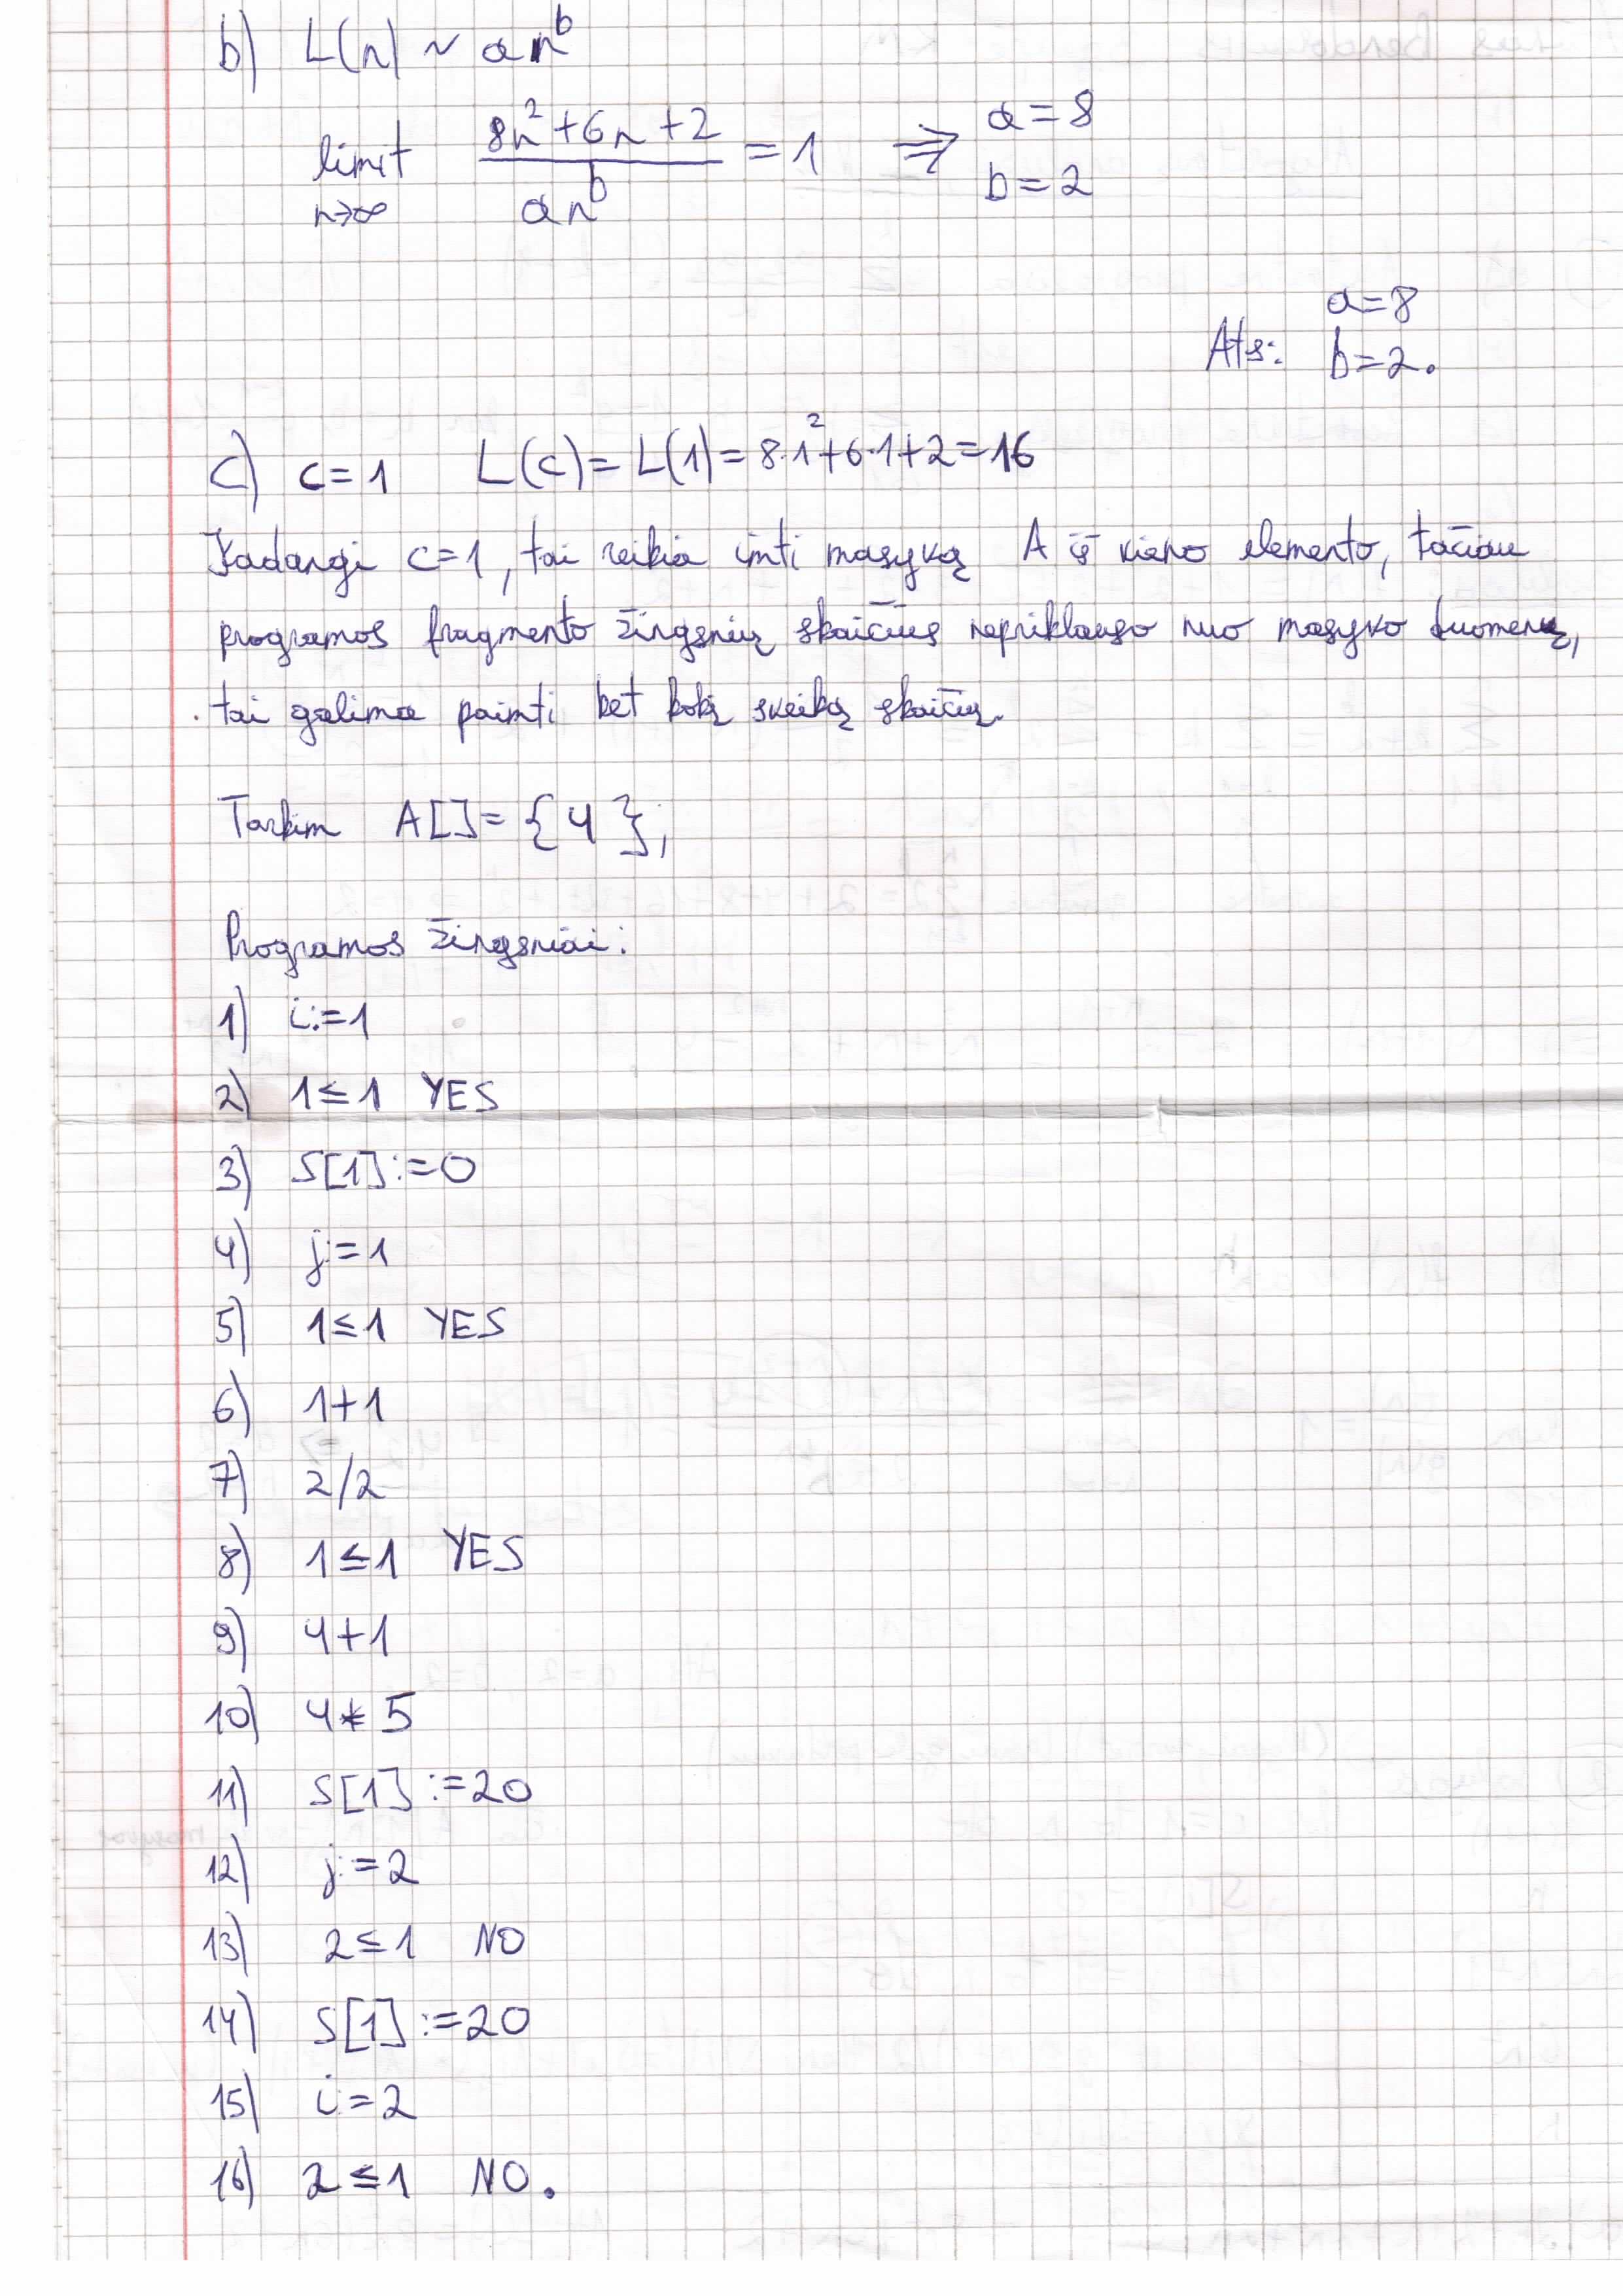 b) L(n) ~ an^b
limit n→∞ (8n²+6n+2)/(an^b) = 1 ⇒ a=8 b=2
Ats: a=8 b=2.
c) c=1 L(c)=L(1)=8·1²+6·1+2=16
Kadangi c=1, tai reikia imti masyvą A iš vieno elemento, tačiau
programos fragmento žingsnių skaičius nepriklauso nuo masyvo duomenų,
tai galima paimti bet kokį sveiką skaičių.
Tarkim A[]={4};
Programos žingsniai:
1) i:=1
2) 1≤1 YES
3) S[1]:=0
4) j:=1
5) 1≤1 YES
6) 1+1
7) 2/2
8) 1≤1 YES
9) 4+1
10) 4*5
11) S[1]:=20
12) j:=2
13) 2≤1 NO
14) S[1]:=20
15) i:=2
16) 2≤1 NO.